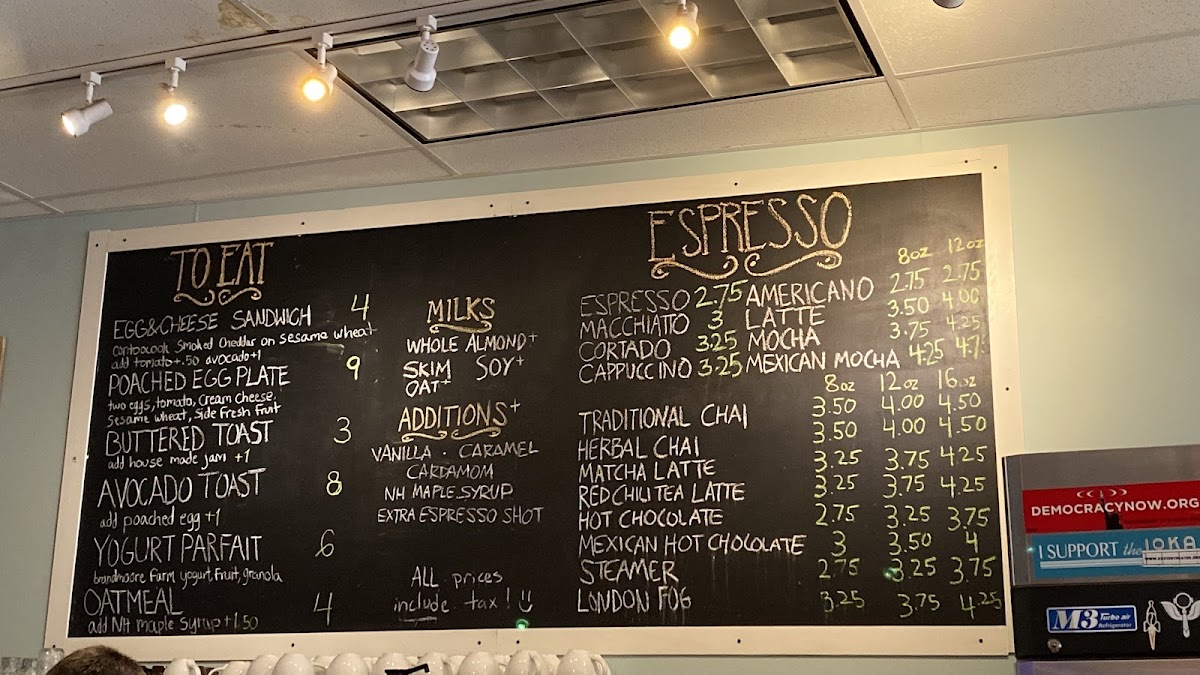 TO EAT
EGG&CHEESE SANDWICH 4
Contoocook Smoked Cheddar on sesame wheat
add tomato+.50 avocado+1
POACHED EGG PLATE 9
two eggs, tomato, Cream Cheese,
Sesame wheat, Side Fresh Fruit
BUTTERED TOAST 3
add house made jam +1
AVOCADO TOAST 8
add poached egg +1
YOGURT PARFAIT 6
brandmoore farm yogurt, fruit, granola
OATMEAL 4
add NH maple syrup +1.50
MILKS
WHOLE ALMOND+
SKIM SOY+
OAT+
ADDITIONS+
VANILLA · CARAMEL
CARDAMOM
NH MAPLE SYRUP
EXTRA ESPRESSO SHOT
ALL prices
include tax!
ESPRESSO
8oz 12oz
ESPRESSO 2.75 AMERICANO 2.75 2.75
MACCHIATO 3 LATTE 3.50 4.00
CORTADO 3.25 MOCHA 3.75 4.25
CAPPUCCINO 3.25 MEXICAN MOCHA 4.25 4.75
8oz 12oz 16oz
TRADITIONAL CHAI 3.50 4.00 4.50
HERBAL CHAI 3.50 4.00 4.50
MATCHA LATTE 3.25 3.75 4.25
RED CHILI TEA LATTE 3.25 3.75 4.25
HOT CHOCOLATE 2.75 3.25 3.75
MEXICAN HOT CHOCOLATE 3 3.50 4
STEAMER 2.75 3.25 3.75
LONDON FOG 3.25 3.75 4.25
DEMOCRACYNOW.ORG
I SUPPORT the IOKA
M3 Turbo air
Refrigerator